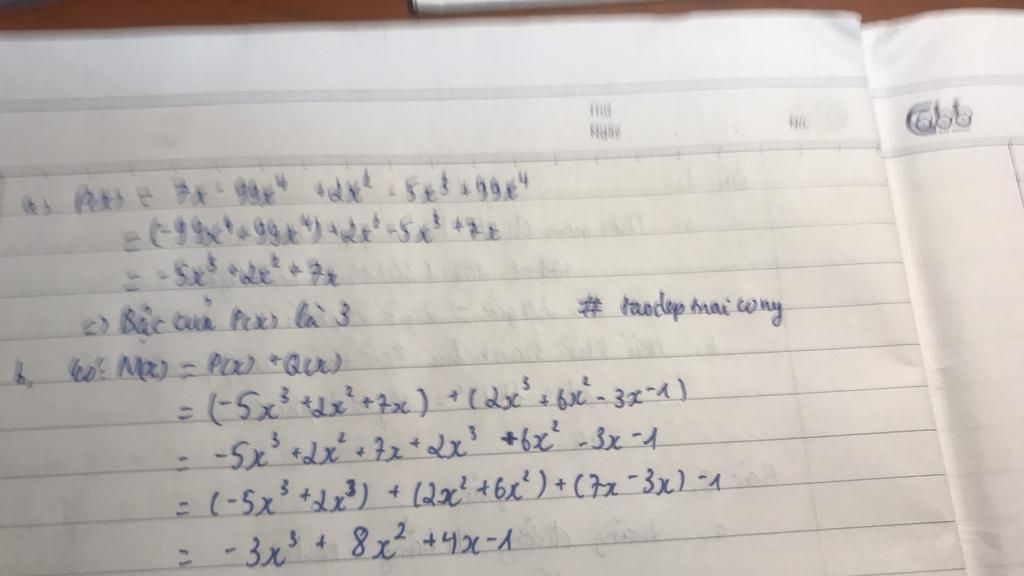 Thứ
Ngày
No.
a) P(x) = 7x - 99x⁴ + 2x² - 5x³ + 99x⁴
= (-99x⁴ + 99x⁴) + 2x² - 5x³ + 7x
= -5x³ + 2x² + 7x
=> Bậc của P(x) là 3
# taodepmaicony
b, có: M(x) = P(x) + Q(x)
= (-5x³ + 2x² + 7x) + (2x³ + 6x² - 3x - 1)
= -5x³ + 2x² + 7x + 2x³ + 6x² - 3x - 1
= (-5x³ + 2x³) + (2x² + 6x²) + (7x - 3x) - 1
= -3x³ + 8x² + 4x - 1